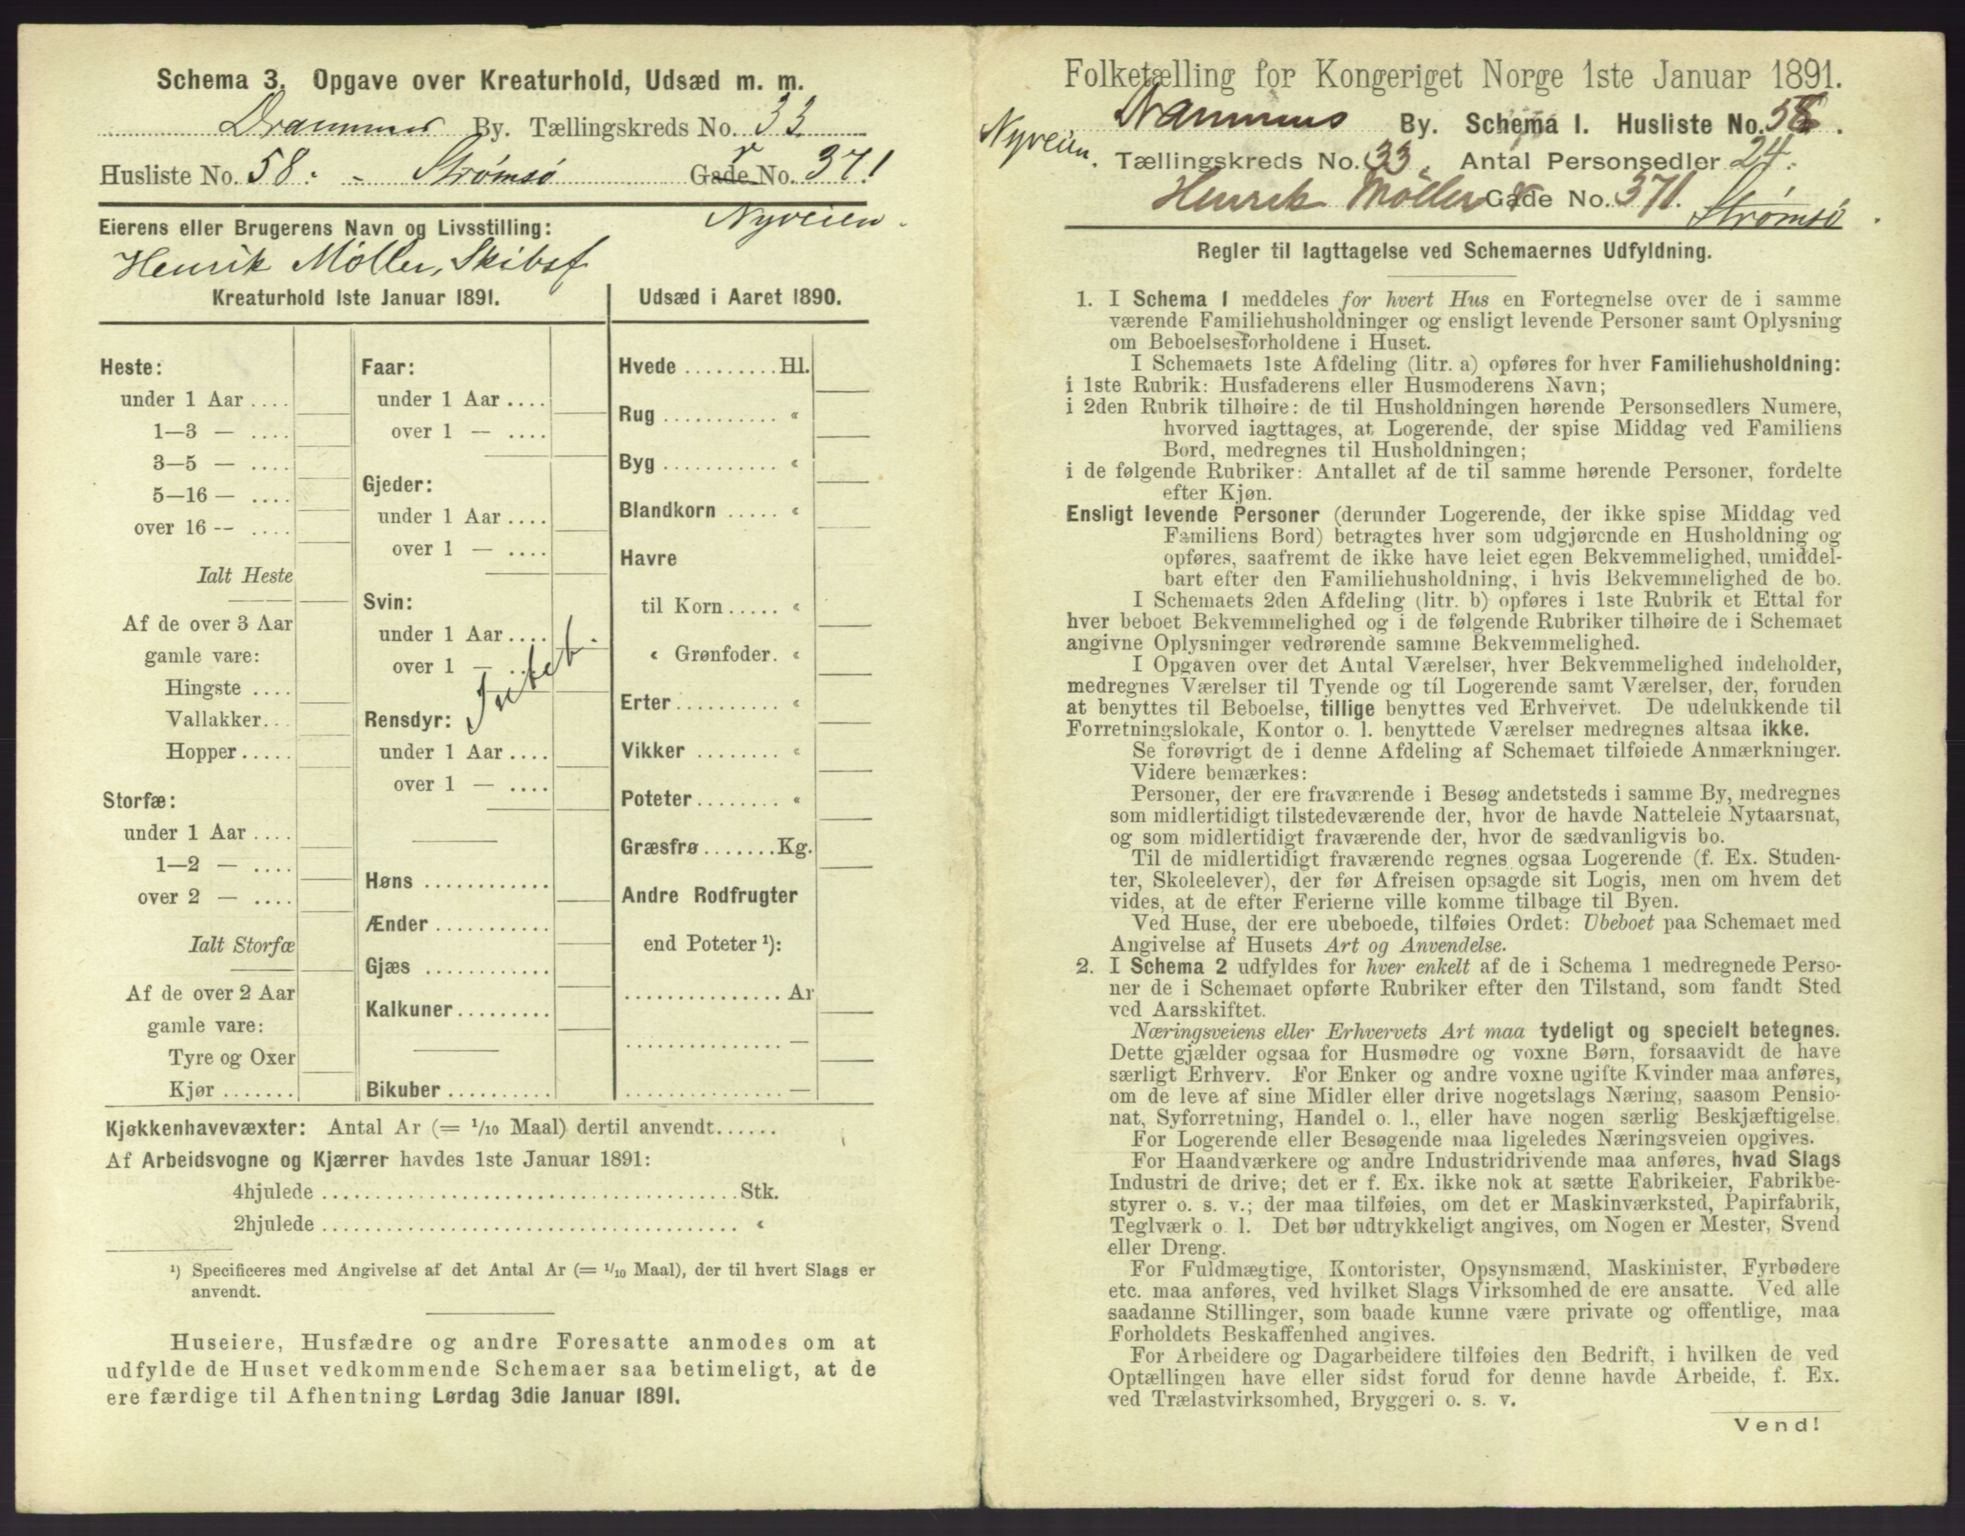 Schema 3. Opgave over Kreaturhold, Udsæd m. m.
Drammens By. Tællingskreds No. 33
Husliste No. 58. - Strømsø Gade No. 371
Nyveien.
Eierens eller Brugerens Navn og Livsstilling:
Henrik Møller, Skibsf
Kreaturhold 1ste Januar 1891.
Heste:
under 1 Aar ....
1—3 — ....
3—5 — ....
5—16 — ....
over 16 -- ....
Ialt Heste
Af de over 3 Aar
gamle vare:
Hingste ....
Vallakker...
Hopper.....
Storfæ:
under 1 Aar ....
1—2 — ....
over 2 — ....
Ialt Storfæ
Af de over 2 Aar
gamle vare:
Tyre og Oxer
Kjør .......
Faar:
under 1 Aar ....
over 1 — ....
Gjeder:
under 1 Aar ....
over 1 — ....
Svin:
under 1 Aar ....
over 1 — ....
Intet.
Rensdyr:
under 1 Aar ....
over 1 — ....
Høns ............
Ænder ...........
Gjæs ............
Kalkuner.........
Bikuber ..........
Udsæd i Aaret 1890.
Hvede .........Hl.
Rug ........... «
Byg ........... «
Blandkorn ..... «
Havre
til Korn ..... «
« Grønfoder. «
Erter .......... «
Vikker ........ «
Poteter ........ «
Græsfrø .......Kg.
Andre Rodfrugter
end Poteter ¹):
............... Ar
............... —
............... —
Kjøkkenhavevæxter: Antal Ar (= 1/10 Maal) dertil anvendt......
Af Arbeidsvogne og Kjærrer havdes 1ste Januar 1891:
4hjulede ......................................Stk.
2hjulede ...................................... «
¹) Specificeres med Angivelse af det Antal Ar (= 1/10 Maal), der til hvert Slags er
anvendt.
Huseiere, Husfædre og andre Foresatte anmodes om at
udfylde de Huset vedkommende Schemaer saa betimeligt, at de
ere færdige til Afhentning Lørdag 3die Januar 1891.
Folketælling for Kongeriget Norge 1ste Januar 1891.
Drammens By. Schema 1. Husliste No. 58.
Nyveien. Tællingskreds No. 33. Antal Personsedler 24.
Henrik Møller Gade No. 371. Strømsø.
Regler til Iagttagelse ved Schemaernes Udfyldning.
1. I Schema 1 meddeles for hvert Hus en Fortegnelse over de i samme
værende Familiehusholdninger og ensligt levende Personer samt Oplysning
om Beboelsesforholdene i Huset.
I Schemaets 1ste Afdeling (litr. a) opføres for hver Familiehusholdning:
i 1ste Rubrik: Husfaderens eller Husmoderens Navn;
i 2den Rubrik tilhøire: de til Husholdningen hørende Personsedlers Numere,
hvorved iagttages, at Logerende, der spise Middag ved Familiens
Bord, medregnes til Husholdningen;
i de følgende Rubriker: Antallet af de til samme hørende Personer, fordelte
efter Kjøn.
Ensligt levende Personer (derunder Logerende, der ikke spise Middag ved
Familiens Bord) betragtes hver som udgjørende en Husholdning og
opføres, saafremt de ikke have leiet egen Bekvemmelighed, umiddel-
bart efter den Familiehusholdning, i hvis Bekvemmelighed de bo.
I Schemaets 2den Afdeling (litr. b) opføres i 1ste Rubrik et Ettal for
hver beboet Bekvemmelighed og i de følgende Rubriker tilhøire de i Schemaet
angivne Oplysninger vedrørende samme Bekvemmelighed.
I Opgaven over det Antal Værelser, hver Bekvemmelighed indeholder,
medregnes Værelser til Tyende og til Logerende samt Værelser, der, foruden
at benyttes til Beboelse, tillige benyttes ved Erhvervet. De udelukkende til
Forretningslokale, Kontor o. l. benyttede Værelser medregnes altsaa ikke.
Se forøvrigt de i denne Afdeling af Schemaet tilføiede Anmærkninger.
Videre bemærkes:
Personer, der ere fraværende i Besøg andetsteds i samme By, medregnes
som midlertidigt tilstedeværende der, hvor de havde Natteleie Nytaarsnat,
og som midlertidigt fraværende der, hvor de sædvanligvis bo.
Til de midlertidigt fraværende regnes ogsaa Logerende (f. Ex. Studen-
ter, Skoleelever), der før Afreisen opsagde sit Logis, men om hvem det
vides, at de efter Ferierne ville komme tilbage til Byen.
Ved Huse, der ere ubeboede, tilføies Ordet: Ubeboet paa Schemaet med
Angivelse af Husets Art og Anvendelse.
2. I Schema 2 udfyldes for hver enkelt af de i Schema 1 medregnede Perso-
ner de i Schemaet opførte Rubriker efter den Tilstand, som fandt Sted
ved Aarsskiftet.
Næringsveiens eller Erhvervets Art maa tydeligt og specielt betegnes.
Dette gjælder ogsaa for Husmødre og voxne Børn, forsaavidt de have
særligt Erhverv. For Enker og andre voxne ugifte Kvinder maa anføres,
om de leve af sine Midler eller drive nogetslags Næring, saasom Pensio-
nat, Syforretning, Handel o. l., eller have nogen særlig Beskjæftigelse.
For Logerende eller Besøgende maa ligeledes Næringsveien opgives.
For Haandværkere og andre Industridrivende maa anføres, hvad Slags
Industri de drive; det er f. Ex. ikke nok at sætte Fabrikeier, Fabrikbe-
styrer o. s. v.; der maa tilføies, om det er Maskinværksted, Papirfabrik,
Teglværk o. l. Det bør udtrykkeligt angives, om Nogen er Mester, Svend
eller Dreng.
For Fuldmægtige, Kontorister, Opsynsmænd, Maskinister, Fyrbødere
etc. maa anføres, ved hvilket Slags Virksomhed de ere ansatte. Ved alle
saadanne Stillinger, som baade kunne være private og offentlige, maa
Forholdets Beskaffenhed angives.
For Arbeidere og Dagarbeidere tilføies den Bedrift, i hvilken de ved
Optællingen have eller sidst forud for denne havde Arbeide, f. Ex.
ved Trælastvirksomhed, Bryggeri o. s. v.
Vend!